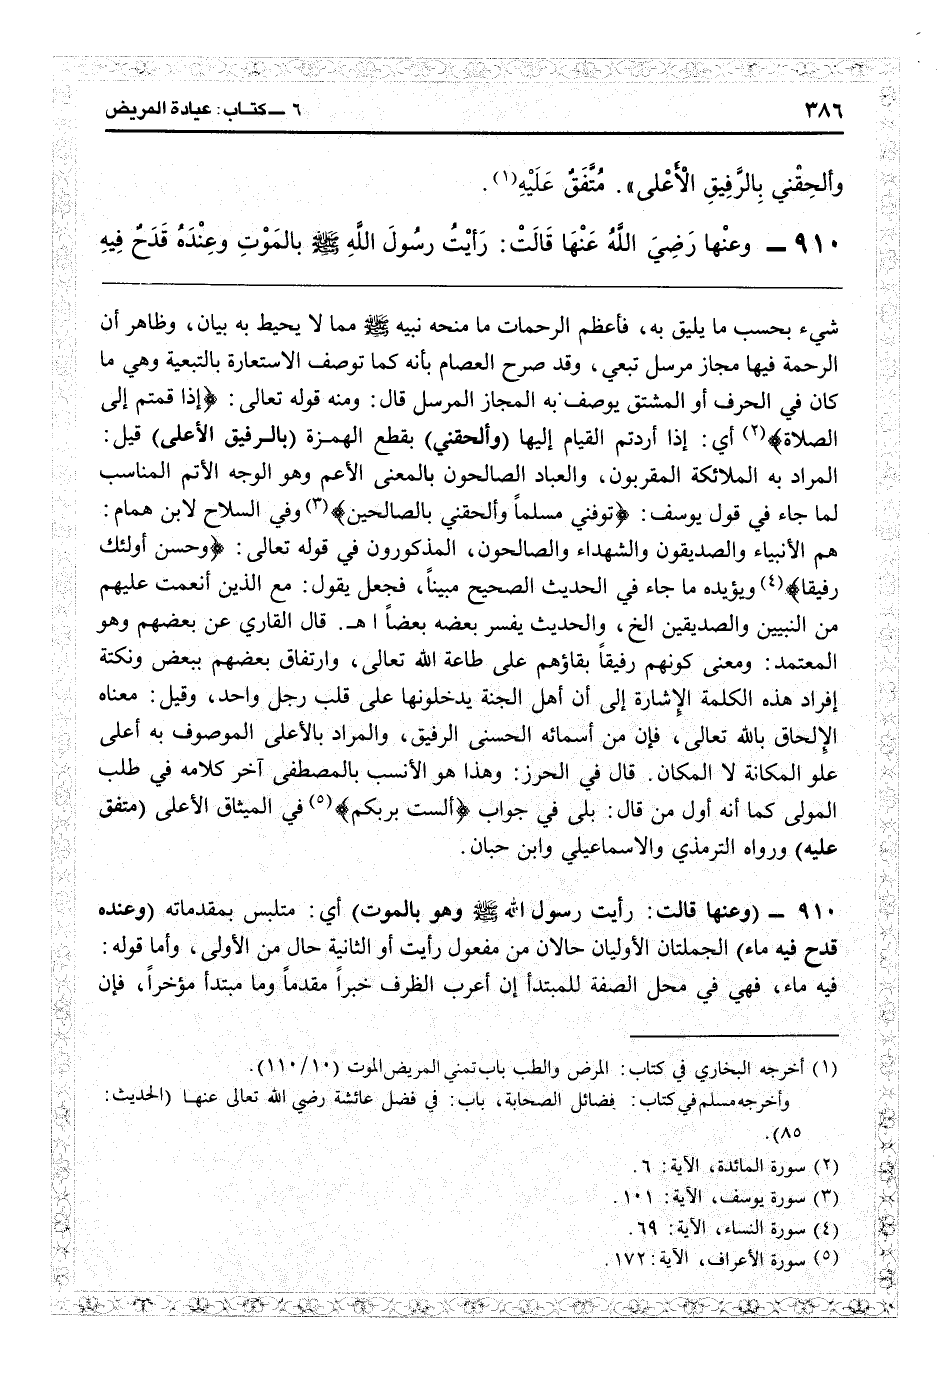 ٣٨٦
٦ ــ كتـاب: عيادة المريض
وألحِقْني بِالرَّفِيقِ الْأَعْلى». مُتَّفَقٌ عَلَيْهِ(١).
٩١٠ ــ وعنْها رَضِيَ اللَّهُ عَنْهَا قَالَتْ: رَأيْتُ رسُولَ اللَّهِ ﷺ بالمَوْتِ وعِنْدَهُ قَدَحٌ فِيهِ
شيء بحسب ما يليق به، فأعظم الرحمات ما منحه نبيه ﷺ مما لا يحيط به بيان، وظاهر أن
الرحمة فيها مجاز مرسل تبعي، وقد صرح العصام بأنه كما توصف الاستعارة بالتبعية وهي ما
كان في الحرف أو المشتق يوصف به المجاز المرسل قال: ومنه قوله تعالى: ﴿إذا قمتم إلى
الصلاة﴾(٢) أي: إذا أردتم القيام إليها (وألحقني) بقطع الهمزة (بالرفيق الأعلى) قيل:
المراد به الملائكة المقربون، والعباد الصالحون بالمعنى الأعم وهو الوجه الأتم المناسب
لما جاء في قول يوسف: ﴿توفني مسلماً وألحقني بالصالحين﴾(٣) وفي السلاح لابن همام:
هم الأنبياء والصديقون والشهداء والصالحون، المذكورون في قوله تعالى: ﴿وحسن أولئك
رفيقا﴾(٤) ويؤيده ما جاء في الحديث الصحيح مبيناً، فجعل يقول: مع الذين أنعمت عليهم
من النبيين والصديقين الخ، والحديث يفسر بعضه بعضاً ا هـ. قال القاري عن بعضهم وهو
المعتمد: ومعنى كونهم رفيقاً بقاؤهم على طاعة الله تعالى، وارتفاق بعضهم ببعض ونكتة
إفراد هذه الكلمة الإشارة إلى أن أهل الجنة يدخلونها على قلب رجل واحد، وقيل: معناه
الإلحاق بالله تعالى، فإن من أسمائه الحسنى الرفيق، والمراد بالأعلى الموصوف به أعلى
علو المكانة لا المكان. قال في الحرز: وهذا هو الأنسب بالمصطفى آخر كلامه في طلب
المولى كما أنه أول من قال: بلى في جواب ﴿ألست بربكم﴾(٥) في الميثاق الأعلى (متفق
عليه) ورواه الترمذي والاسماعيلي وابن حبان.
٩١٠ ــ (وعنها قالت: رأيت رسول الله ﷺ وهو بالموت) أي: متلبس بمقدماته (وعنده
قدح فيه ماء) الجملتان الأوليان حالان من مفعول رأيت أو الثانية حال من الأولى، وأما قوله:
فيه ماء، فهي في محل الصفة للمبتدأ إن أعرب الظرف خبراً مقدماً وما مبتدأ مؤخراً، فإن
(١) أخرجه البخاري في كتاب: المرض والطب باب تمني المريض الموت (١١٠/١٠).
وأخرجه مسلم في كتاب: فضائل الصحابة، باب: في فضل عائشة رضي الله تعالى عنها (الحديث:
٨٥).
(٢) سورة المائدة، الآية: ٦.
(٣) سورة يوسف، الآية: ١٠١.
(٤) سورة النساء، الآية: ٦٩.
(٥) سورة الأعراف، الآية: ١٧٢.